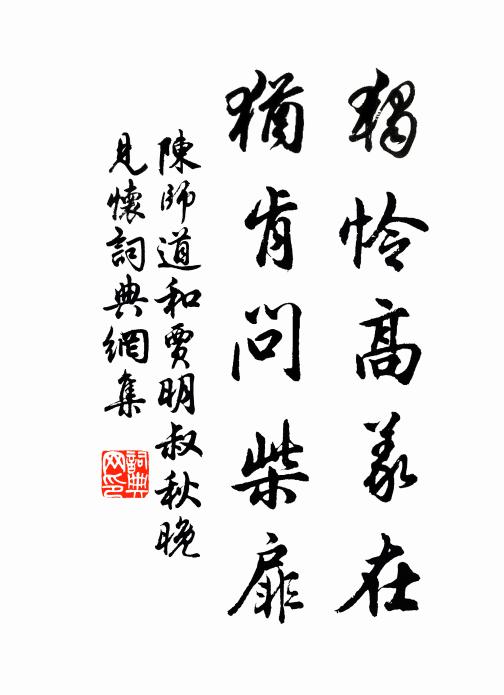 獨怜高義在
猶肯問柴扉
陳師道和賈明叔秋晚
見懷詞典網集
詞典
网印